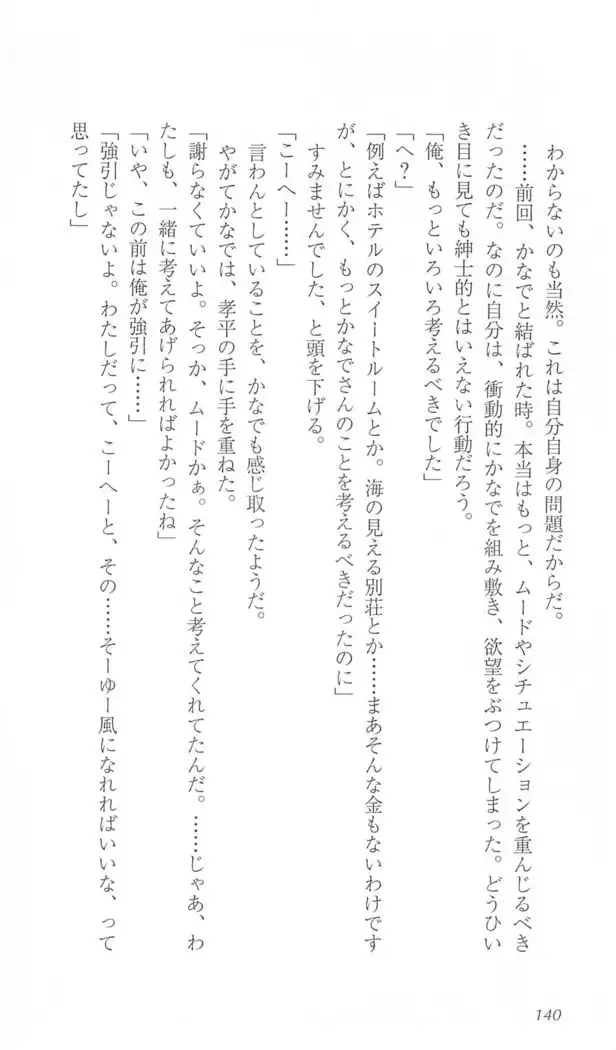 わからないのも当然。これは自分自身の問題だからだ。
……前回、かなでと結ばれた時。本当はもっと、ムードやシチュエーションを重んじるべき
だったのだ。なのに自分は、衝動的にかなでを組み敷き、欲望をぶつけてしまった。どうひい
き目に見ても紳士的とはいえない行動だろう。
「俺、もっといろいろ考えるべきでした」
「へ？」
「例えばホテルのスイートルームとか。海の見える別荘とか……まあそんな金もないわけです
が、とにかく、もっとかなでさんのことを考えるべきだったのに」
すみませんでした、と頭を下げる。
「こーへー……」
言わんとしていることを、かなでも感じ取ったようだ。
やがてかなでは、孝平の手に手を重ねた。
「謝らなくていいよ。そっか、ムードかぁ。そんなこと考えてくれてたんだ。……じゃあ、わ
たしも、一緒に考えてあげられればよかったね」
「いや、この前は俺が強引に……」
「強引じゃないよ。わたしだって、こーへーと、その……そーゆー風になれればいいな、って
思ってたし」
140